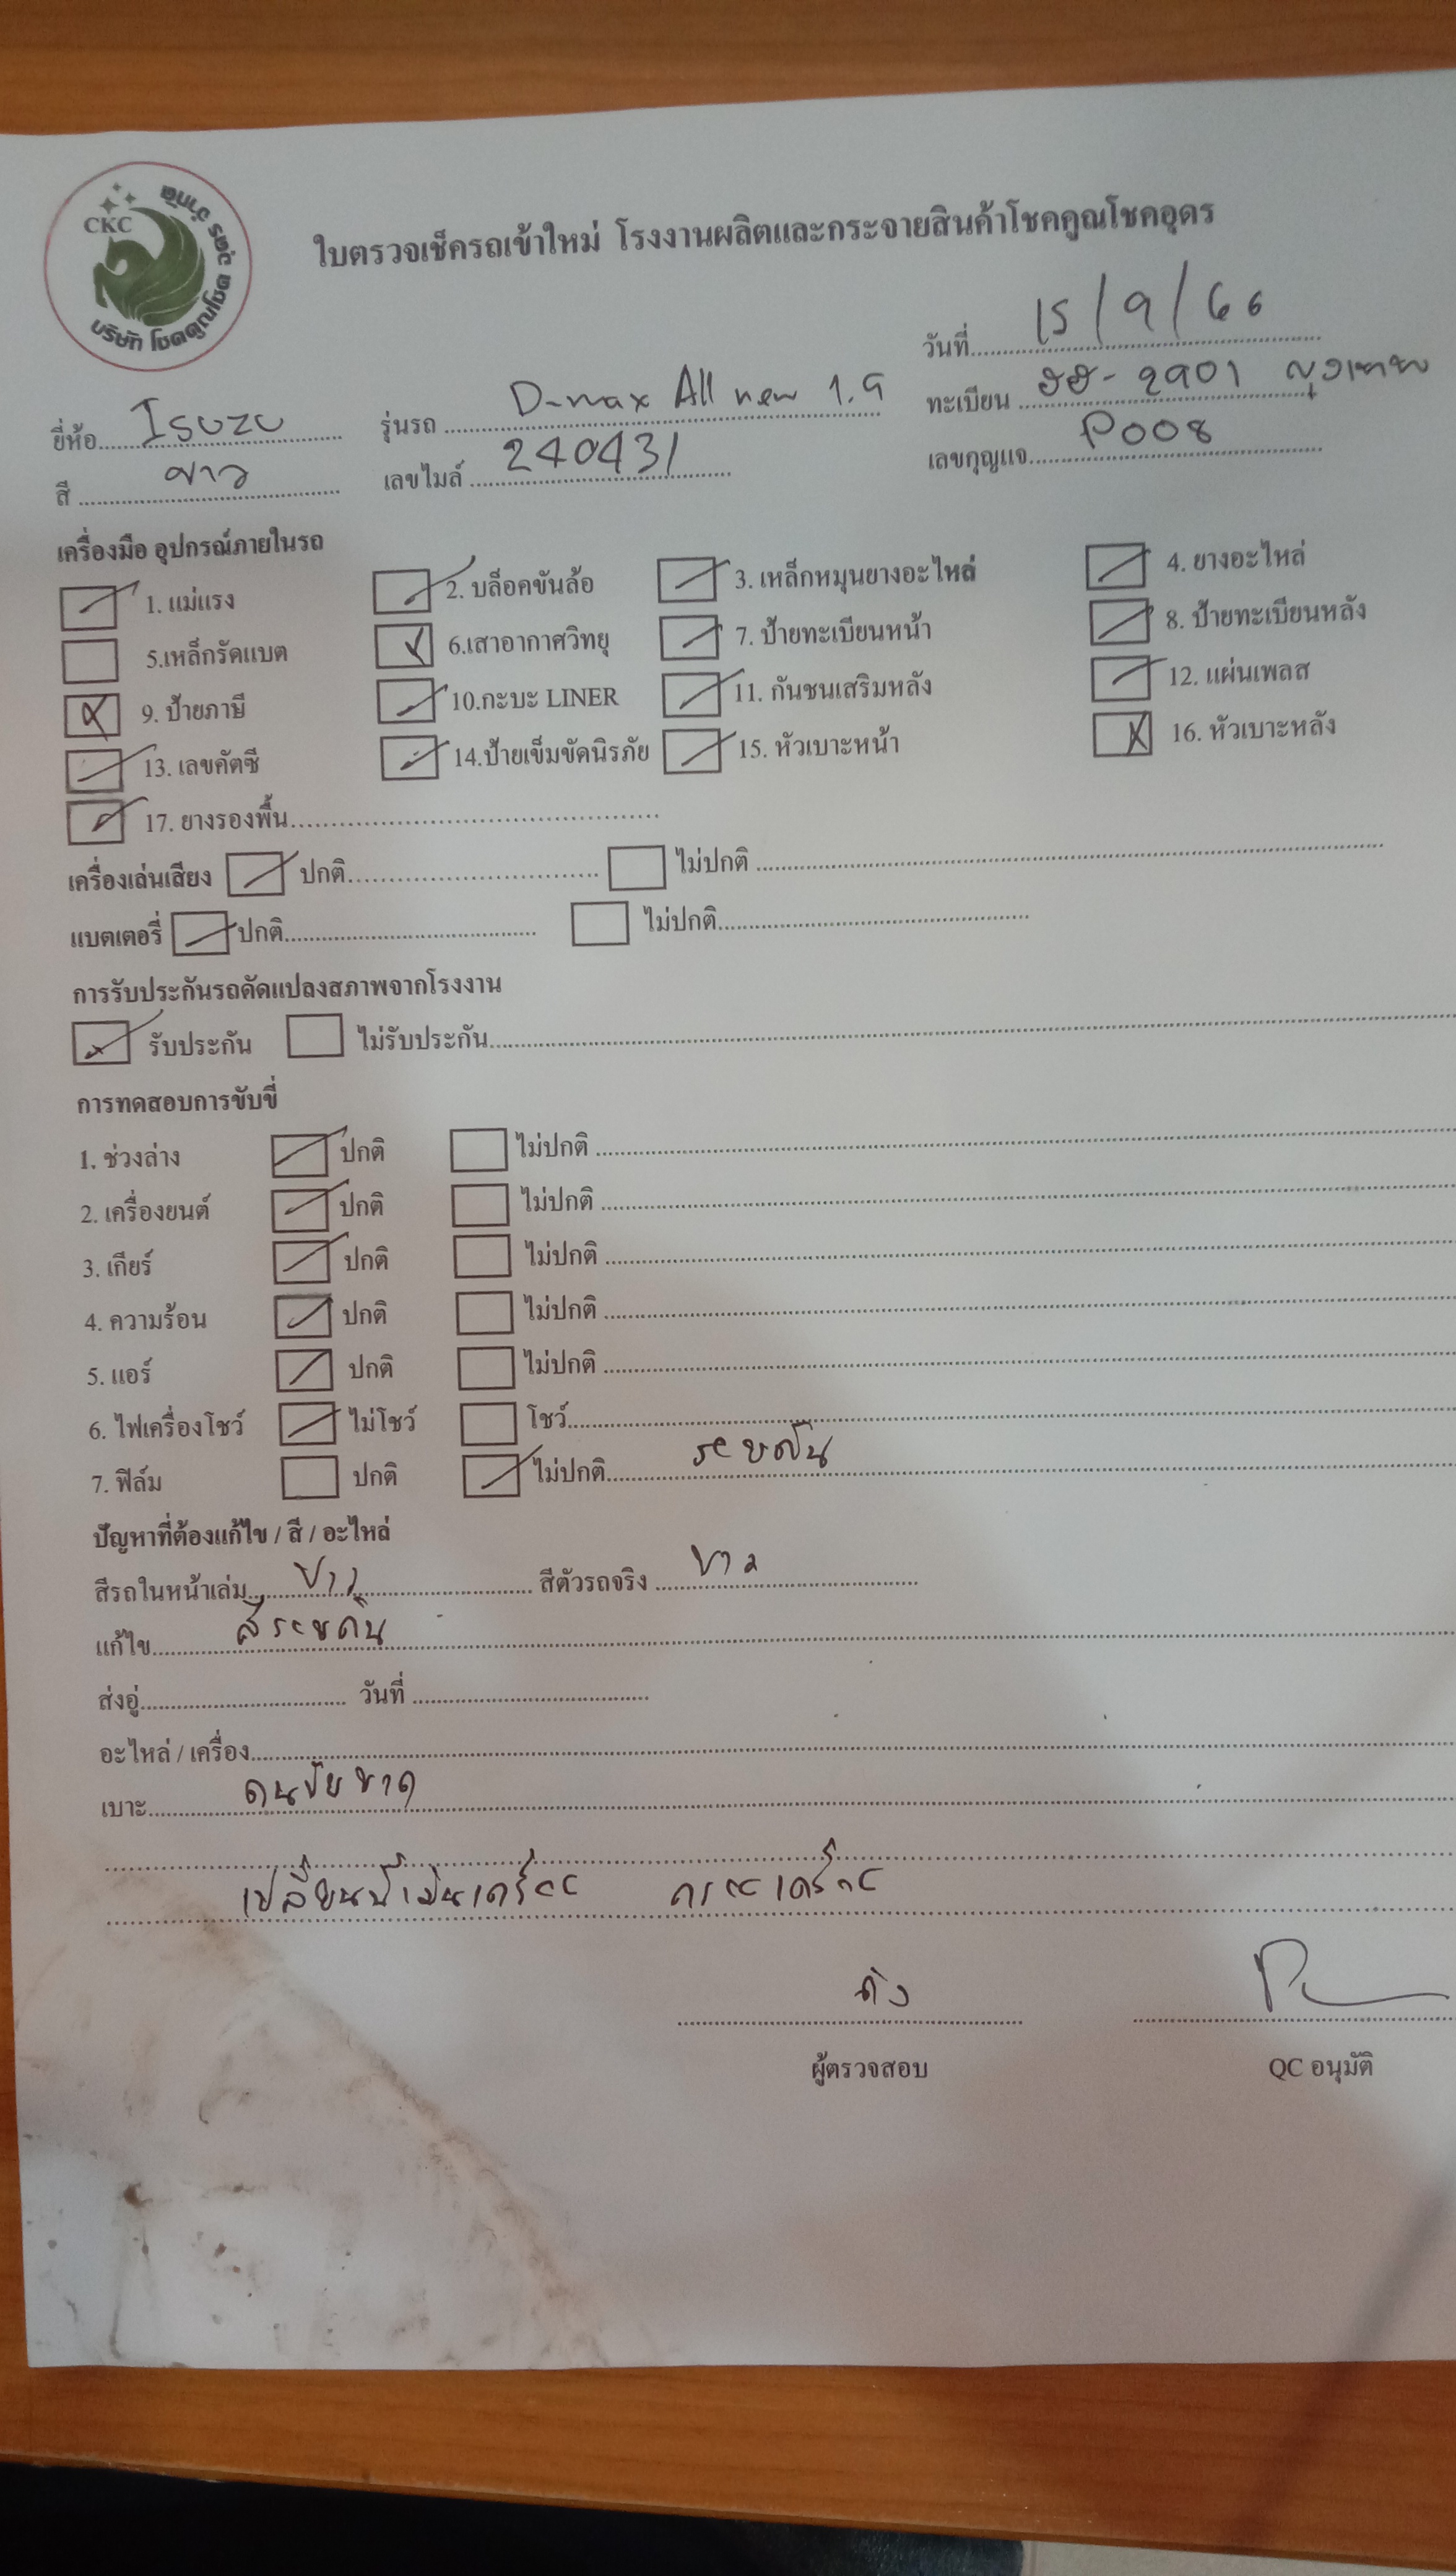 CKC
บริษัท โชคคูณโชค ค้ารถ จำกัด
ใบตรวจเช็ครถเข้าใหม่ โรงงานผลิตและกระจายสินค้าโชคคูณโชคอุดร
วันที่ 15/9/66
ยี่ห้อ Isuzu รุ่นรถ D-max All new 1.9 ทะเบียน 2901
สี ขาว เลขไมล์ 240431 เลขกุญแจ P008
เครื่องมือ อุปกรณ์ภายในรถ
1. แม่แรง 2. บล็อคขันล้อ 3. เหล็กหมุนยางอะไหล่ 4. ยางอะไหล่
5.เหล็กรัดแบต 6.เสาอากาศวิทยุ 7. ป้ายทะเบียนหน้า 8. ป้ายทะเบียนหลัง
9. ป้ายภาษี 10.กะบะ LINER 11. กันชนเสริมหลัง 12. แผ่นเพลส
13. เลขคัตซี 14.ป้ายเข็มขัดนิรภัย 15. หัวเบาะหน้า 16. หัวเบาะหลัง
17. ยางรองพื้น
เครื่องเล่นเสียง ปกติ ไม่ปกติ
แบตเตอรี่ ปกติ ไม่ปกติ
การรับประกันรถดัดแปลงสภาพจากโรงงาน
รับประกัน ไม่รับประกัน
การทดสอบการขับขี่
1. ช่วงล่าง ปกติ ไม่ปกติ
2. เครื่องยนต์ ปกติ ไม่ปกติ
3. เกียร์ ปกติ ไม่ปกติ
4. ความร้อน ปกติ ไม่ปกติ
5. แอร์ ปกติ ไม่ปกติ
6. ไฟเครื่องโชว์ ไม่โชว์ โชว์
7. ฟิล์ม ปกติ ไม่ปกติ
ปัญหาที่ต้องแก้ไข / สี / อะไหล่
สีรถในหน้าเล่ม ขาว สีตัวรถจริง ขาว
แก้ไข
ส่งอู่ วันที่
อะไหล่ / เครื่อง
เบาะ คนขับขาด
ผู้ตรวจสอบ QC อนุมัติ